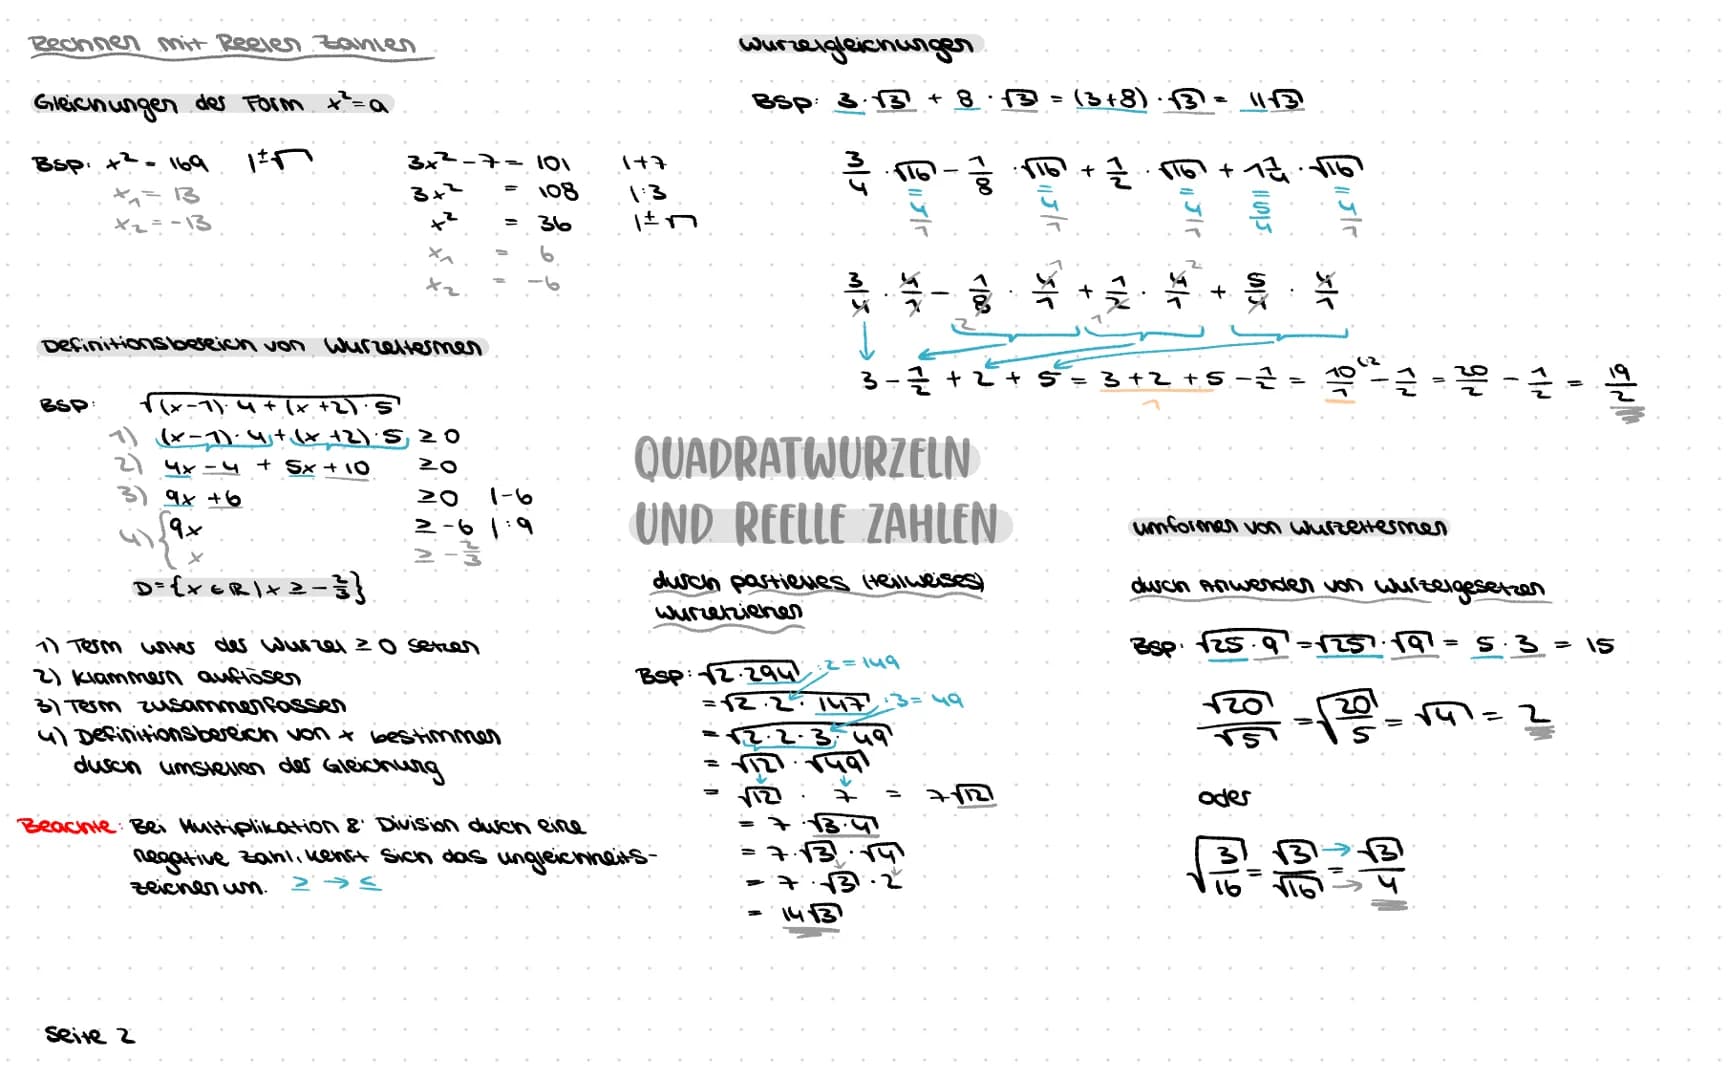 Rechnen mit Reelen Zahlen
Gleichungen der Form x²=a
Bsp: x² = 169 |±√
x₁ = 13
x₂ = -13
3x² - 7 = 101 |+7
3x² = 108 |:3
x² = 36 |±√
x₁ = 6
x₂ = -6
Definitionsbereich von Wurzeltermen
BSP: √((x-1)·4+(x+2)·5)
1) (x-1)·4+(x+2)·5 ≥ 0
2) 4x-4 + 5x+10 ≥ 0
3) 9x +6 ≥ 0 |-6
4) { 9x ≥ -6 |:9
x ≥ -2/3
D={x ∈ R | x ≥ -2/3}
1) Term unter der Wurzel ≥ 0 setzen
2) Klammern auflösen
3) Term zusammenfassen
4) Definitionsbereich von x bestimmen
durch umstellen der Gleichung
Beachte: Bei Multiplikation & Division durch eine
negative Zahl, kehrt sich das ungleichheits-
zeichen um. ≥ → ≤
Seite 2
Wurzelgleichungen
BSP: 3·√3 + 8·√3 = (3+8)·√3 = 11√3
3/4 · √16 - 1/8 · √16 + 1/2 · √16 + 1 1/4 · √16
= = = = =
4/1 4/1 4/1 5/4 4/1
3/4 · 4/1 - 1/8 · 4/1 + 1/2 · 4/1 + 5/4 · 4/1
1 2
2 1
3 - 1/2 + 2 + 5 = 3+2+5 - 1/2 = 10/1 (·2 - 1/2 = 20/2 - 1/2 = 19/2
1
QUADRATWURZELN
UND REELLE ZAHLEN
durch partielles (teilweises)
Wurzelziehen
Bsp: √2·294 :2 = 149
= √2·2·147 :3 = 49
= √2·2·3·49
= √12 · √49
= √12 · 7 = 7√12
= 7·√3·4
= 7·√3·√4
= 7·√3·2
= 14√3
umformen von Wurzeltermen
durch Anwenden von Wurzelgesetzen
Bsp: √25·9 = √25·√9 = 5·3 = 15
√20/√5 = √(20/5) = √4 = 2
oder
√(3/16) = √3/√16 →→ = √3/4